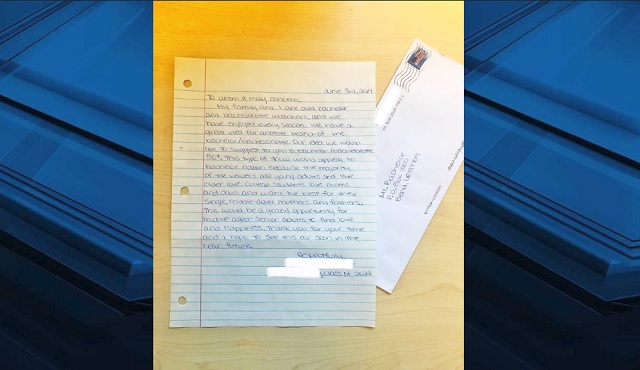 June 3rd, 2019
To whom it may concern,
My family and I are avid bachelor
and bachelorette watchers, and we
have enjoyed every season. We have a
great idea for another branch of the
bachelor/bachelorette. Our idea we would
like to suggest to you is bachelor/bachelorette
50+. This type of show would appeal to
bachelor nation because the majority
of the viewers are young adults and love
older love. College students love moms
and dads and want the best for
single, middle-aged mothers and fathers.
This would be a grand opportunity for
middle aged-senior adults to find love
and happiness. Thank you for your time
and I hope to see this air soon in the
near future.
Respectfully,
class of 2019